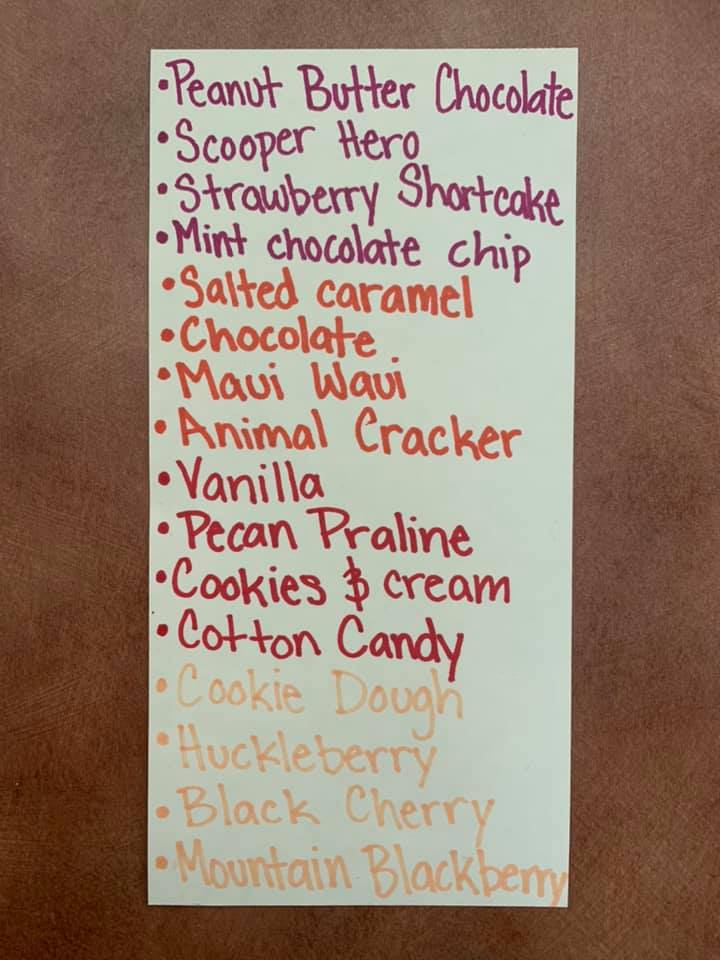 •Peanut Butter Chocolate
•Scooper Hero
•Strawberry Shortcake
•Mint chocolate chip
•Salted caramel
•Chocolate
•Maui Waui
•Animal Cracker
•Vanilla
•Pecan Praline
•Cookies & cream
•Cotton Candy
•Cookie Dough
•Huckleberry
•Black Cherry
•Mountain Blackberry